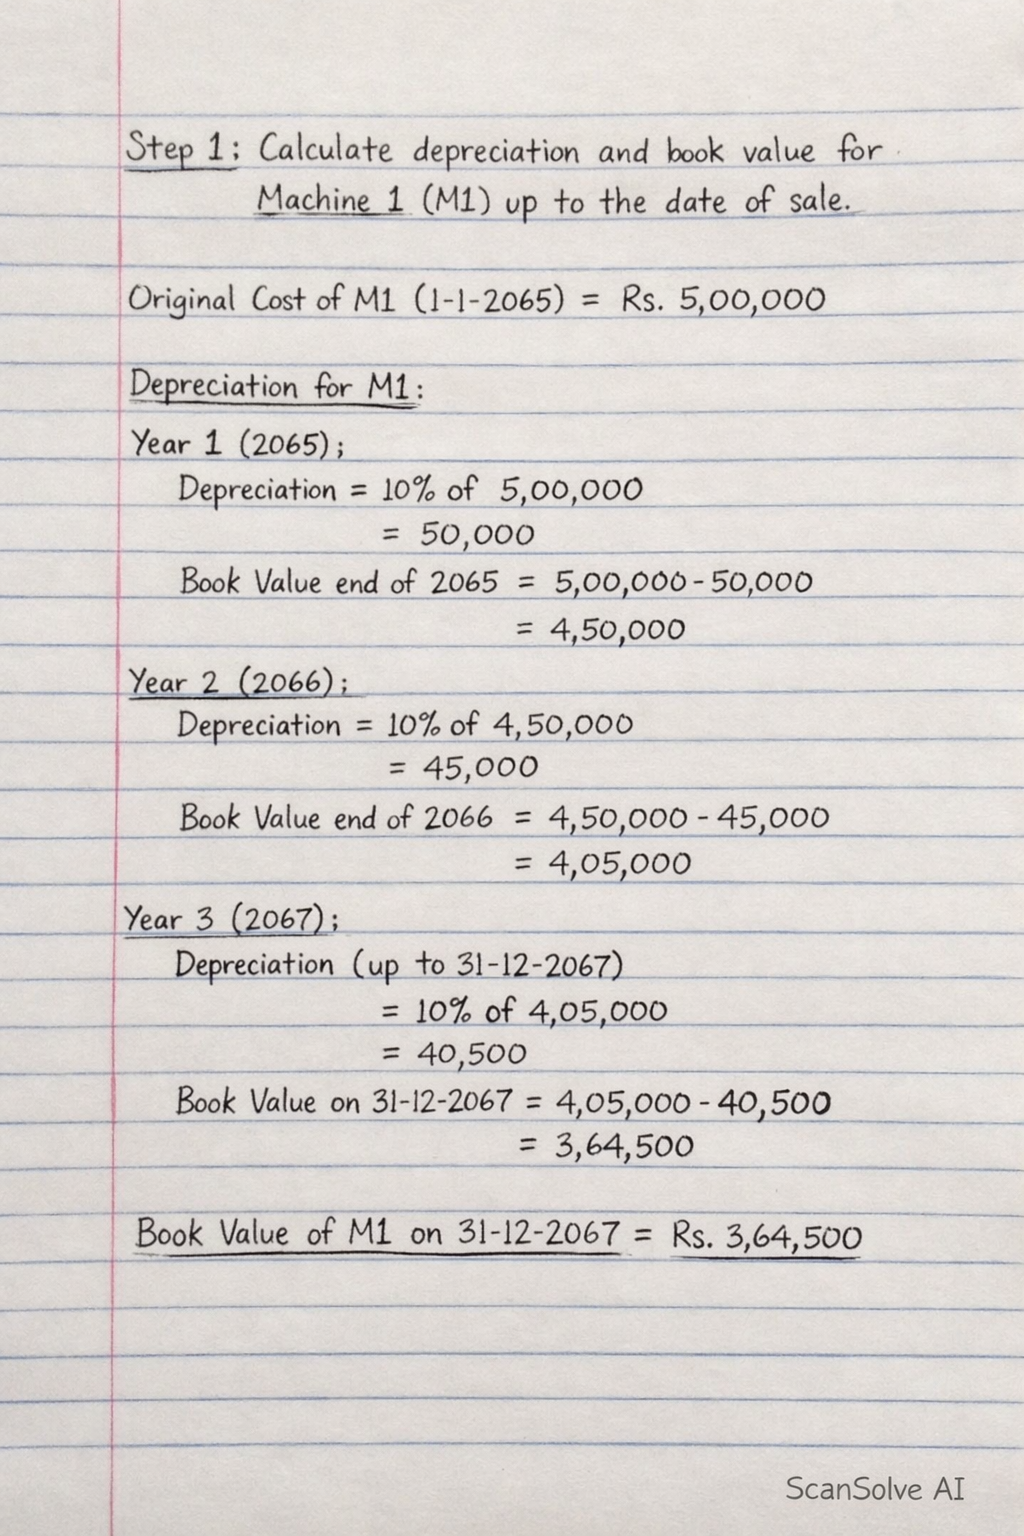 Step 1: Calculate depreciation and book value for
Machine 1 (M1) up to the date of sale.
Original Cost of M1 (1-1-2065) = Rs. 5,00,000
Depreciation for M1:
Year 1 (2065);
Depreciation = 10% of 5,00,000
= 50,000
Book Value end of 2065 = 5,00,000 - 50,000
= 4,50,000
Year 2 (2066);
Depreciation = 10% of 4,50,000
= 45,000
Book Value end of 2066 = 4,50,000 - 45,000
= 4,05,000
Year 3 (2067);
Depreciation (up to 31-12-2067)
= 10% of 4,05,000
= 40,500
Book Value on 31-12-2067 = 4,05,000 - 40,500
= 3,64,500
Book Value of M1 on 31-12-2067 = Rs. 3,64,500
ScanSolve AI